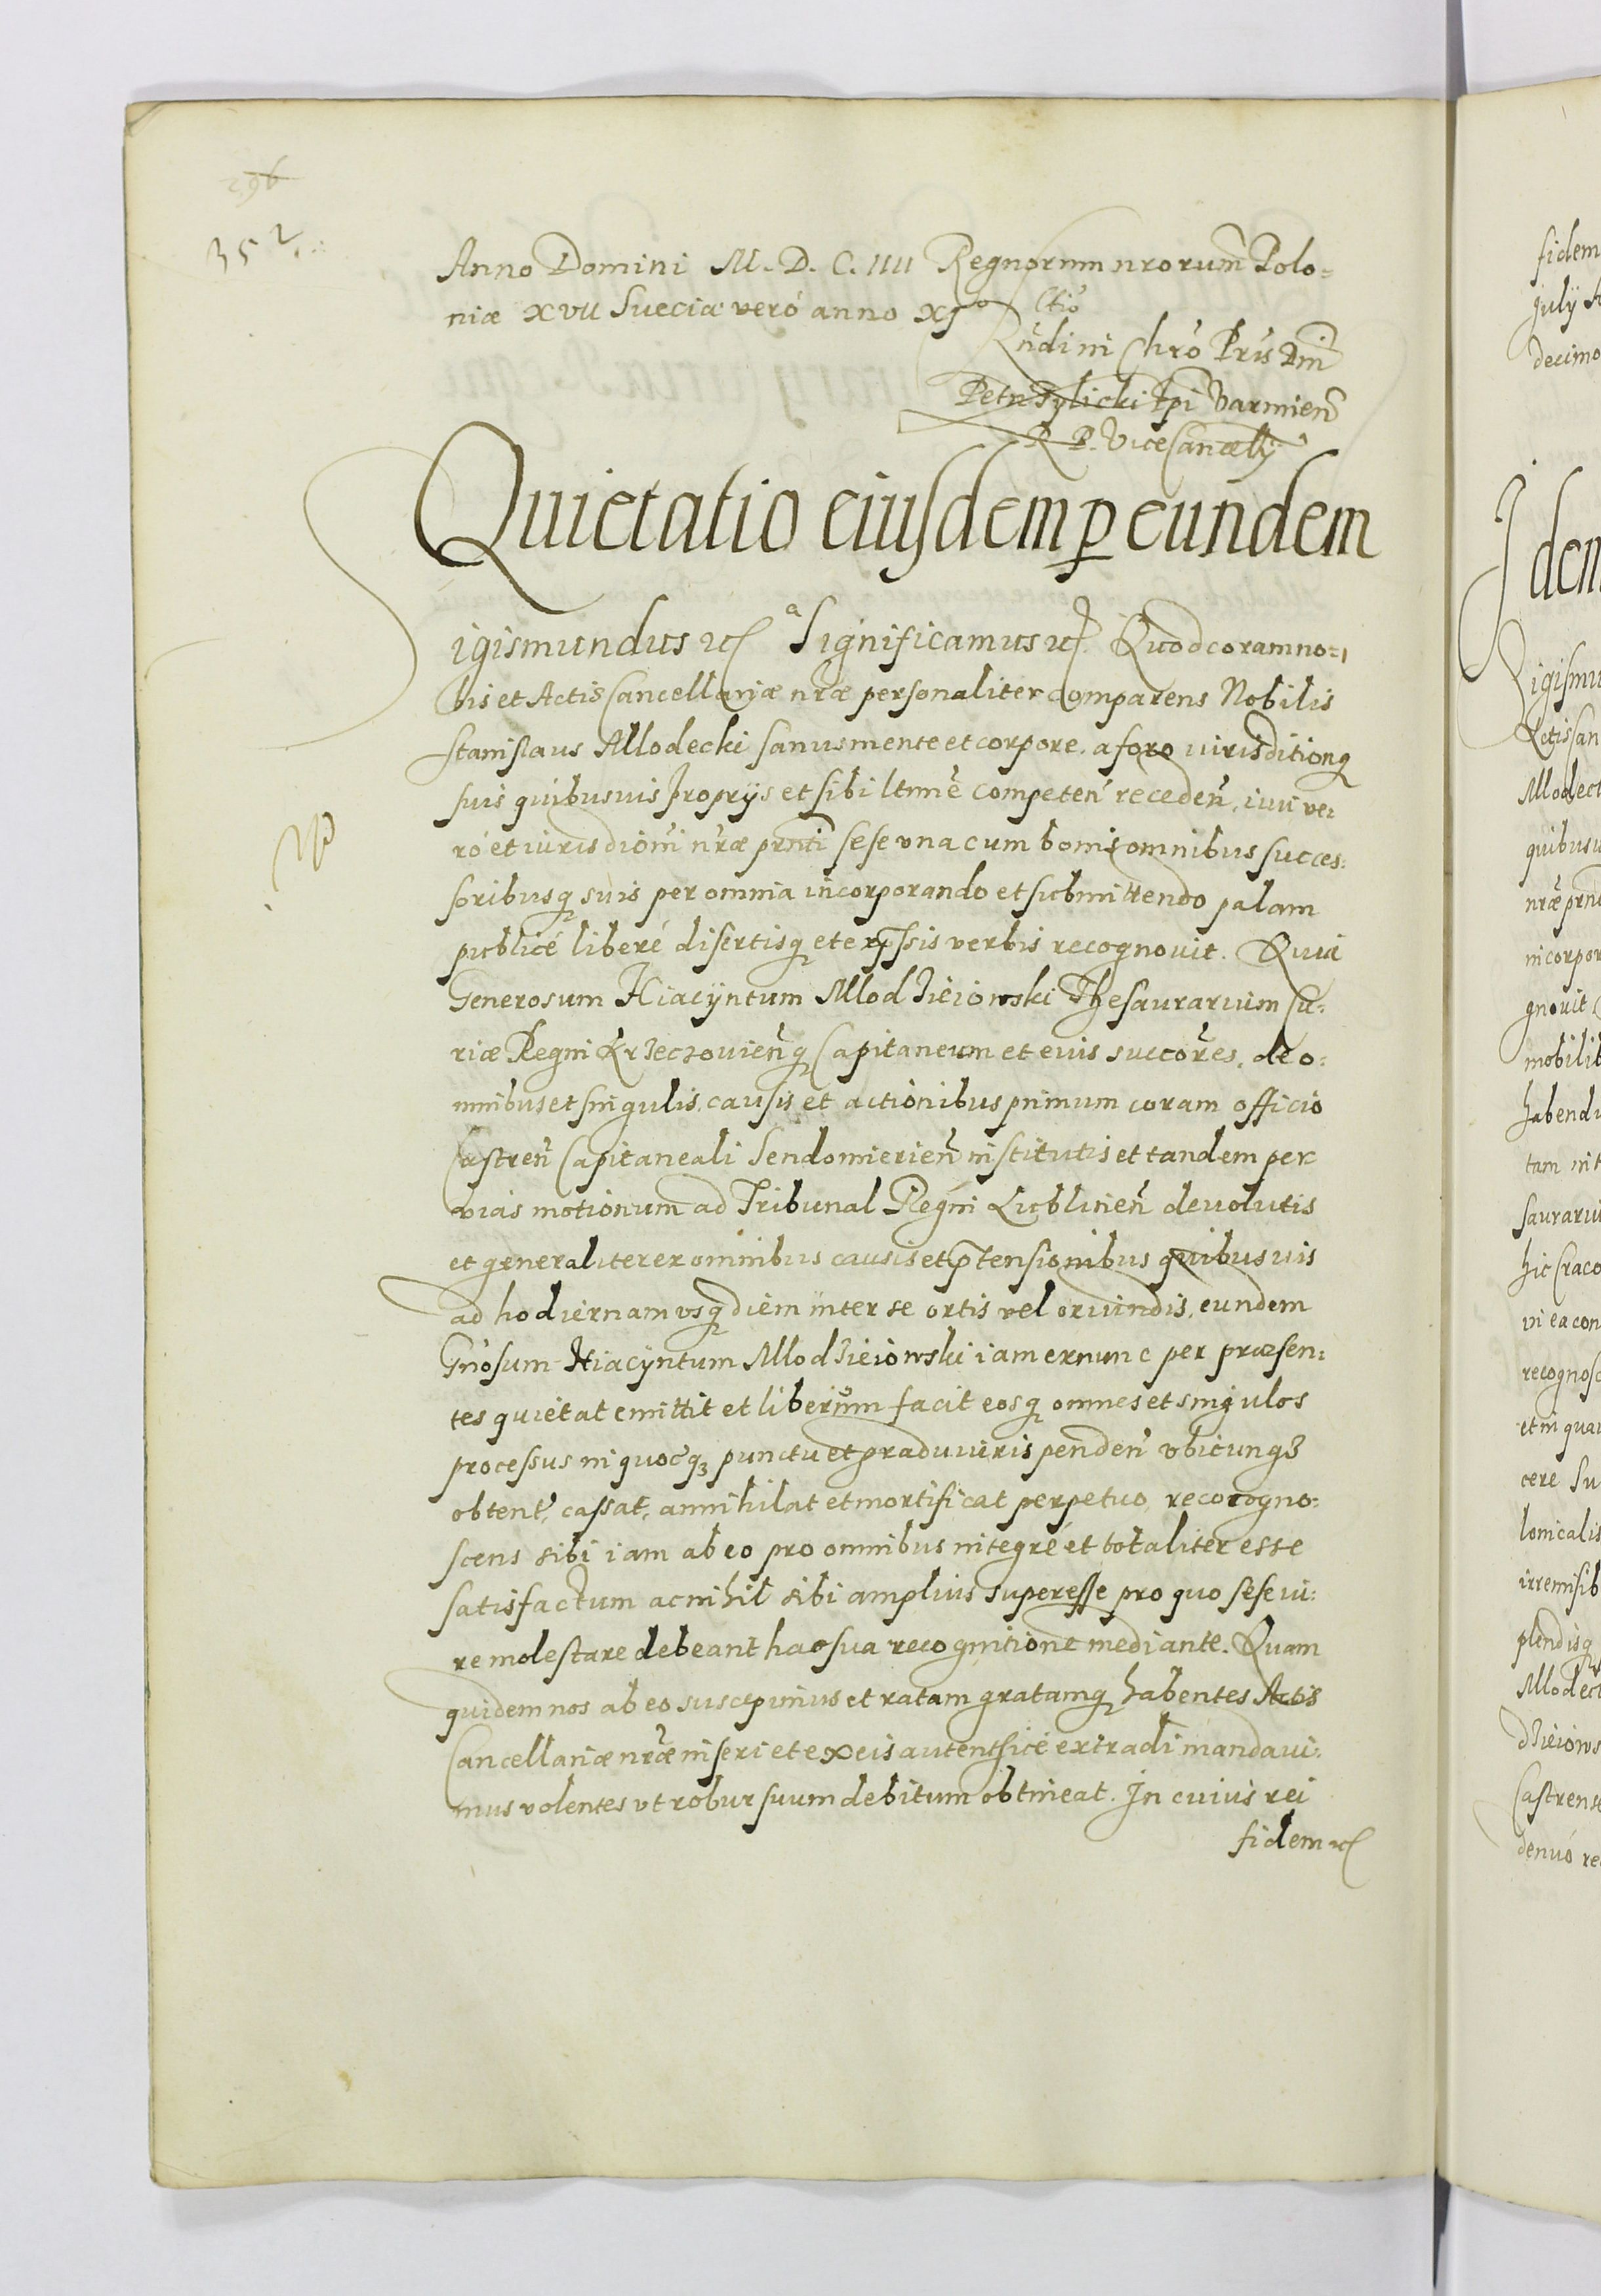 296
352
Anno Domini M. D. C. IIII Regnorum nrorum Polo=
niæ XVII Sueciæ veró anno XJº
Rndi in Chro Pris Dni
Petri Tylicki Epi Varmien
R P. ViceCancellrij
Quietatio eiusdem p eundem
Sigismundus etc Significamus etc Quod coram no=
bis et Actis Cancellariæ nræ personaliter comparens Nobilis
Stanislaus Mlodecki sanus mente et corpore. a foro iurisditionq
suis quibusuis proprijs et sibi ltme competen receden, iuri ve:
ro et iurisdioni nræ prnti sese una cum bonis omnibus succes:
soribusq suis per omnia incorporando et submittendo palam
publicé liberé disertisq et expssis verbis recognouit. Quia
Generosum Hiacÿntum Mlodzieiowski Thesaurarium Cu:
riæ Regni Krzeczovienq Capitaneum et euis succores, de o:
mnibus et singulis causis et actionibus primum coram officio
Castren Capitaneali Sendomierien institutis et tandem per
vias motionum ad Tribunal Regni Lublinen deuolutis
et generaliter ex omnibus causis et ptensionibus quibusuis
ad hodiernam usq diem inter se ortis vel oriundis, eundem
Gnosum Hiacÿntum Mlodzieiowski iam ex nunc per præsen:
tes quietat emittit et liberum facit eosq omnes et singulos
processus in quocq punctu et gradu iuris penden vbicunq
obtent, cassat, annihilat et mortificat perpetuo, recocogno:
scens sibi iam ab eo pro omnibus integré et totaliter esse
satisfactum ac nihil sibi amplius superesse pro quo sese iu:
re molestare debeant hac sua recognitione mediante. Quam
quidem nos ab eo suscepimus et ratam gratamq habentes Actis
Cancellariæ nræ inseri et ex eis autenthicé extradi mandaui:
mus volentes vt robur suum debitum obtineat. In cuius rei
fidem etc